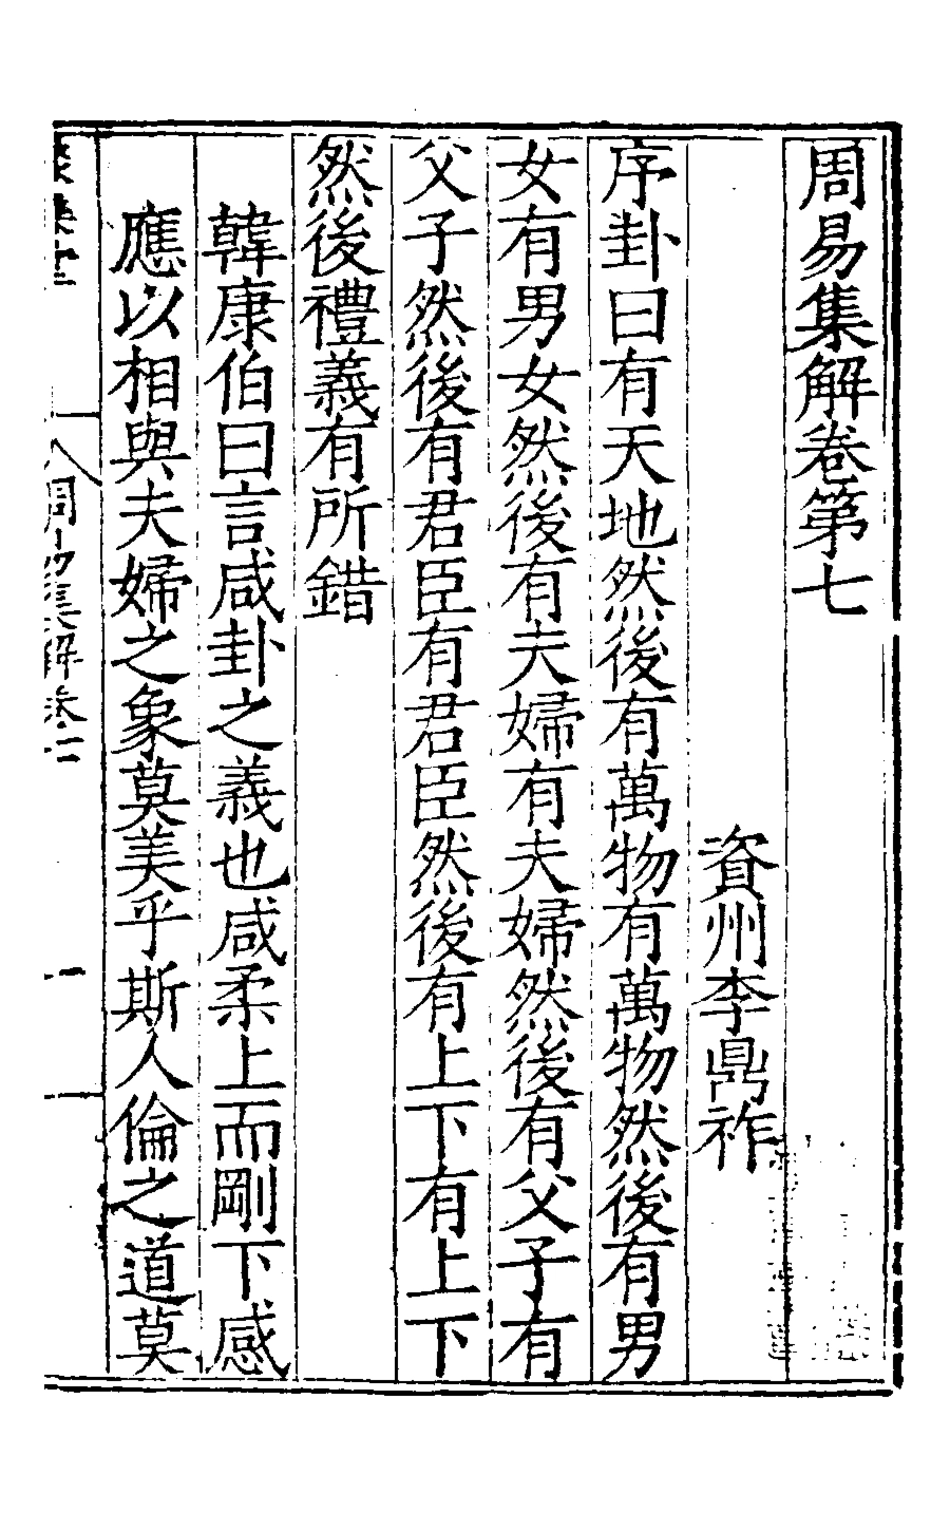 周易集解卷第七
資州李鼎祚
序卦曰有天地然後有萬物有萬物然後有男
女有男女然後有夫婦有夫婦然後有父子有
父子然後有君臣有君臣然後有上下有上下
然後禮義有所錯
韓康伯曰言咸卦之義也咸柔上而剛下感
應以相與夫婦之象莫美乎斯人倫之道莫
周易集解卷